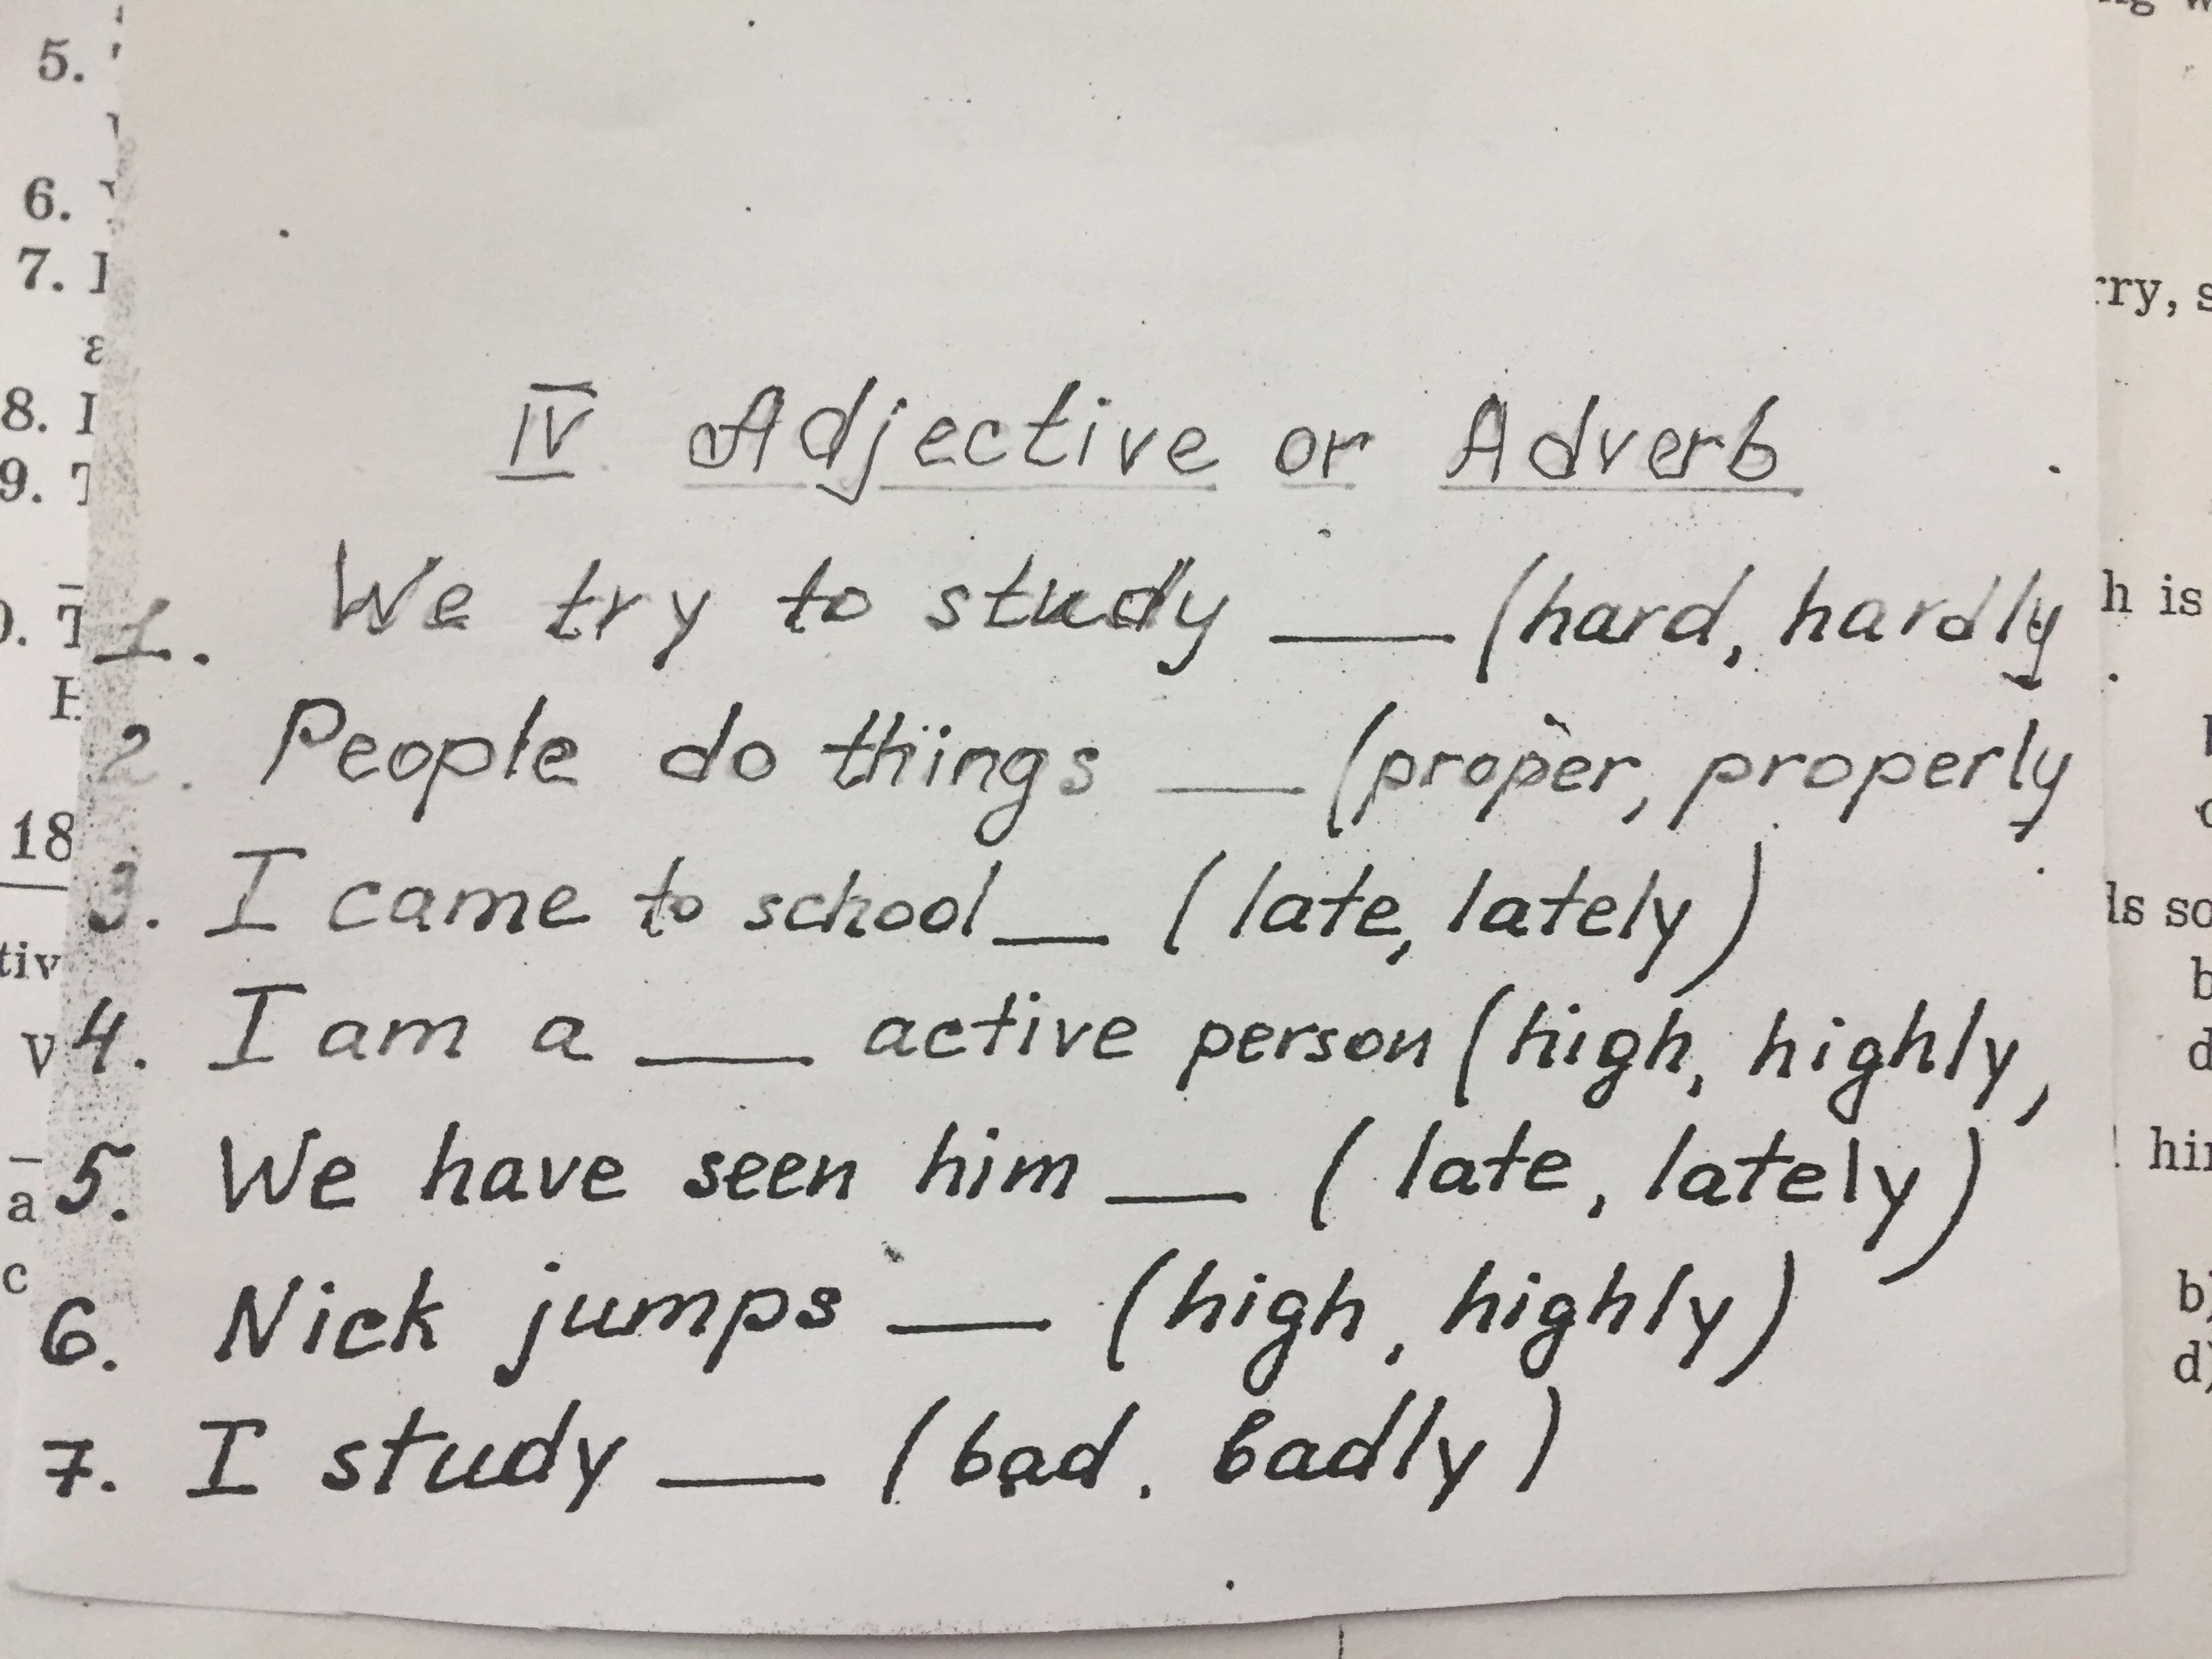 IV Adjective or Adverb
1. We try to study ___ (hard, hardly
2. People do things ___ (proper, properly
3. I came to school ___ (late, lately)
4. I am a ___ active person (high, highly,
5. We have seen him ___ (late, lately)
6. Nick jumps ___ (high, highly)
7. I study ___ (bad. badly)
5.
6.
7. I
8. I
9.
18
tiv
V
a
c
rry, s
h is
ls so
b
d
hin
b)
d)